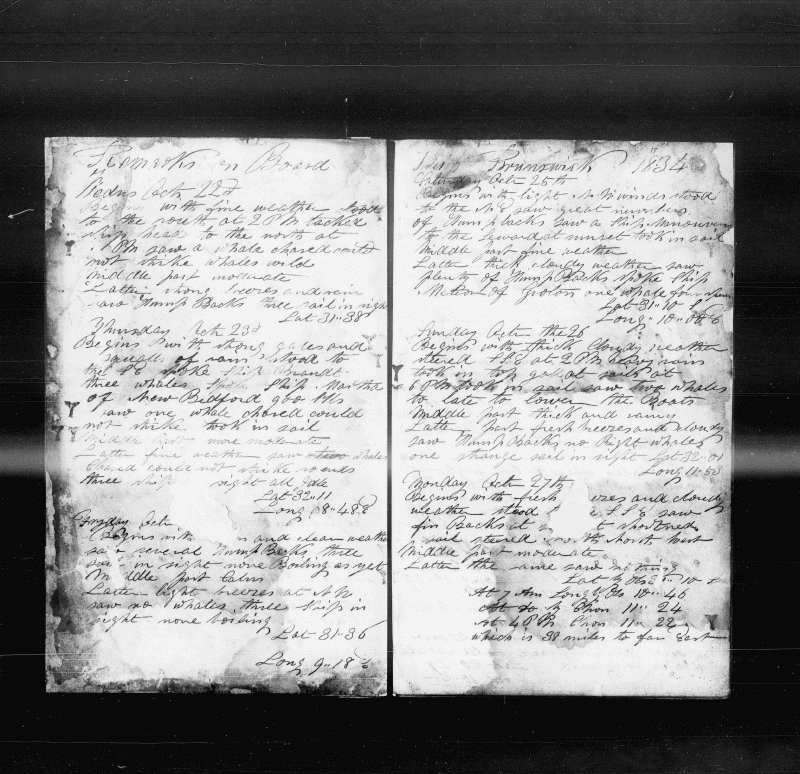 Remarks on Board
Wedns Oct 22d
Begins with fine weather stood
to the south at 2 PM tacked
ship head to the north at
PM saw a whale chased could
not strike whales wild
Middle part moderate
Latter strong breezes and rain
saw Hump Backs three sail in sight
Lat 31"38
Thursday Oct 23d
Begins with strong gales and
squalls of rain stood to
the SE spoke Ship
three whales spoke Ship Martha
of New Bedford 900 bbls
saw one whale chased could
not strike took in sail
Middle part more moderate
Latter fine weather saw two whales
chased could not strike so ends
three ship sight all Idle
Lat 32"11
Long 8"48 E
Fryday Oct
Begins with and clear weather
saw several Hump Backs three
sail in sight none Boiling as yet
Middle part Calm
Latter light breezes at NW
saw no whales three Ship in
sight none boiling
Lat 31"36
Long 9"18
Ship Brunswick 1834
Saturday Oct 25th
Begins with light winds stood
to the NE saw great numbers
of Hump backs saw a Ship Manouvering
to the Leward at sunset took in sail
Middle part fine weather
Latter thick cloudy weather saw
plenty of Hump Backs spoke Ship
Meteor of Groton one whale
Lat 31"10
Long 10"
Sunday Oct the 26
Begins with thick Cloudy weather
steered SSE at 2 PM heavy rain
took in top gal sails at
6 PM took in sail saw two whales
to late to lower the Boats
Middle part thick and rainy
Latter part fresh breezes and cloudy
saw Hump Backs no Right whales
one strange sail in sight Lat 32"01
Long 11"53
Monday Oct 27th
Begins with fresh breezes and cloudy
weather stood SSE saw
fin Backs at shortened
sail steered north North West
Middle part moderate
Latter the same saw nothing
Lat by Obs 10
At 7 Am Long by Obs 10"46
by Chron 11"24
at 4 PM Chron 11"22
which is 38 miles to far East